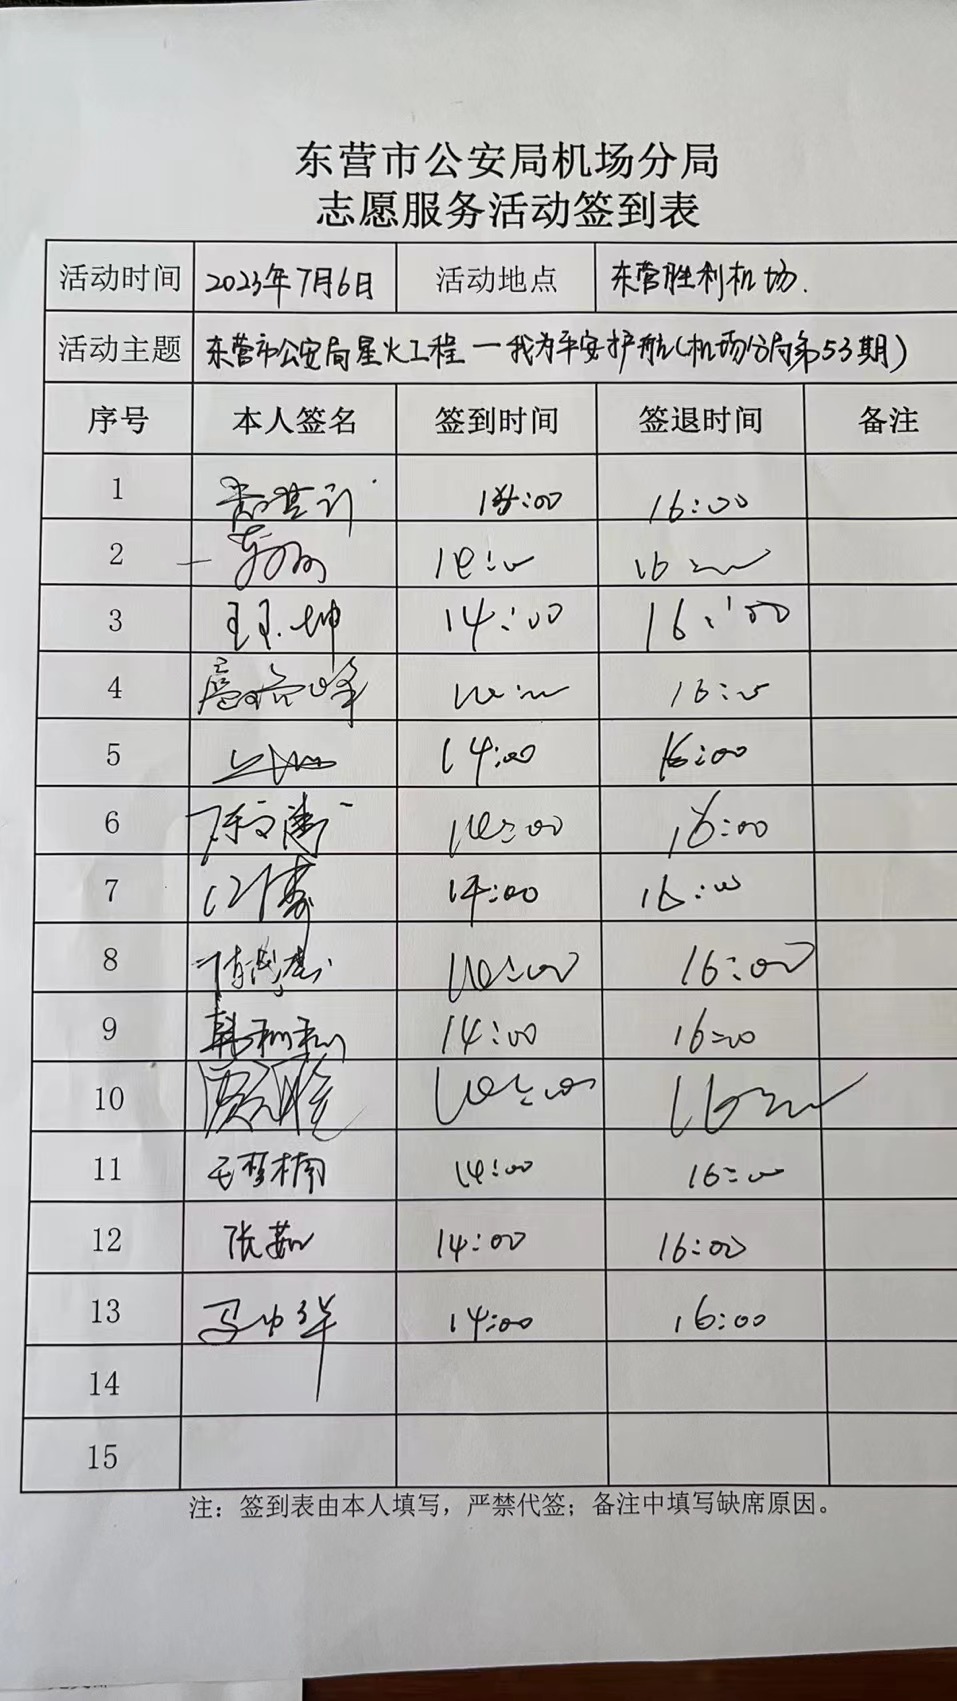 东营市公安局机场分局
志愿服务活动签到表
活动时间 2023年7月6日 活动地点 东营胜利机场.
活动主题 东营市公安局星火工程—我为平安护航(机场分局第53期)
序号 本人签名 签到时间 签退时间 备注
1 14:00 16:00
2 14:00 16:00
3 14:00 16:00
4 14:00 16:00
5 14:00 16:00
6 14:00 16:00
7 14:00 16:00
8 14:00 16:00
9 14:00 16:00
10 14:00 16:00
11 王梦楠 14:00 16:00
12 张茹 14:00 16:00
13 14:00 16:00
14
15
注：签到表由本人填写，严禁代签；备注中填写缺席原因。